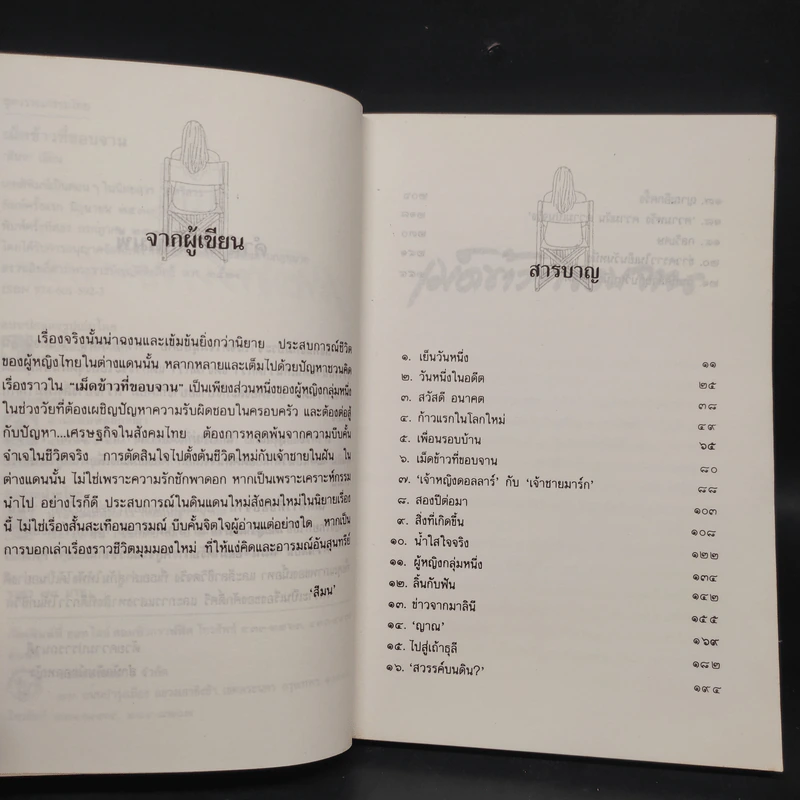 จากผู้เขียน
เรื่องจริงนั้นน่าฉงนและเข้มข้นยิ่งกว่านิยาย ประสบการณ์ชีวิต
ของผู้หญิงไทยในต่างแดนนั้น หลากหลายและเต็มไปด้วยปัญหาชวนคิด
เรื่องราวใน “เม็ดข้าวที่ขอบจาน” เป็นเพียงส่วนหนึ่งของผู้หญิงกลุ่มหนึ่ง
ในช่วงวัยที่ต้องเผชิญปัญหาความรับผิดชอบในครอบครัว และต้องต่อสู้
กับปัญหา...เศรษฐกิจในสังคมไทย ต้องการหลุดพ้นจากความบีบคั้น
จำเจในชีวิตจริง การตัดสินใจไปตั้งต้นชีวิตใหม่กับเจ้าชายในฝัน ใน
ต่างแดนนั้น ไม่ใช่เพราะความรักชักพาดอก หากเป็นเพราะเคราะห์กรรม
นำไป อย่างไรก็ดี ประสบการณ์ในดินแดนใหม่สังคมใหม่ในนิยายเรื่อง
นี้ ไม่ใช่เรื่องสั้นสะเทือนอารมณ์ บีบคั้นจิตใจผู้อ่านแต่อย่างใด หากเป็น
การบอกเล่าเรื่องราวชีวิตมุมมองใหม่ ที่ให้แง่คิดและอารมณ์อันสุนทรีย์
‘สีมน’
สารบาญ
๑. เย็นวันหนึ่ง ๑๑
๒. วันหนึ่งในอดีต ๒๕
๓. สวัสดี อนาคต ๓๘
๔. ก้าวแรกในโลกใหม่ ๔๙
๕. เพื่อนรอบบ้าน ๖๕
๖. เม็ดข้าวที่ขอบจาน ๘๐
๗. ‘เจ้าหญิงดอลลาร์’ กับ ‘เจ้าชายมาร์ก’ ๘๘
๘. สองปีต่อมา ๑๐๓
๙. สิ่งที่เกิดขึ้น ๑๐๘
๑๐. น้ำใสใจจริง ๑๒๒
๑๑. ผู้หญิงกลุ่มหนึ่ง ๑๓๔
๑๒. ลิ้นกับฟัน ๑๔๒
๑๓. ข่าวจากมาลินี ๑๕๕
๑๔. ‘ญาณ’ ๑๖๙
๑๕. ไปสู่เถ้าธุลี ๑๘๒
๑๖. ‘สวรรค์บนดิน?’ ๑๙๔